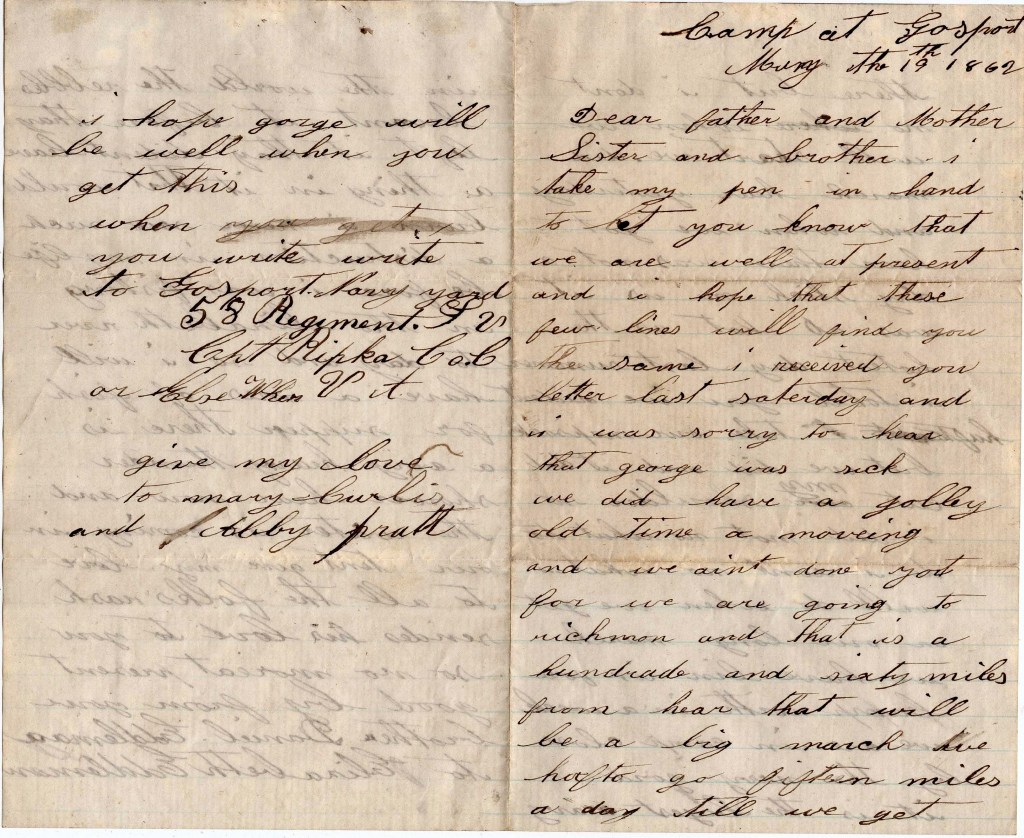 Camp at Gosport
May the 19th 1862
Dear father and Mother
Sister and brother i
take my pen in hand
to let you know that
we are well at present
and i hope that these
few lines will find you
the same i received you
letter last saterday and
i was sorry to hear
that george was sick
we did have a jolley
old time a moveing
and we aint done yet
for we are going to
richmon and that is a
hundrade and sixty miles
from hear that will
be a big march we
hafto go fifteen miles
a day till we get
i hope gorge will
be well when you
get this
when you get
you write write
to Gosport Navy yard
58 Regiment. P V
Cpt Ripka Co. C
or Else When
give my love
to mary Curlis
and Abby pratt